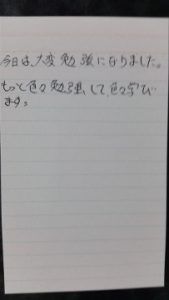 今日は、大変勉強になりました。
もっと色々勉強して、色々学び
ます。